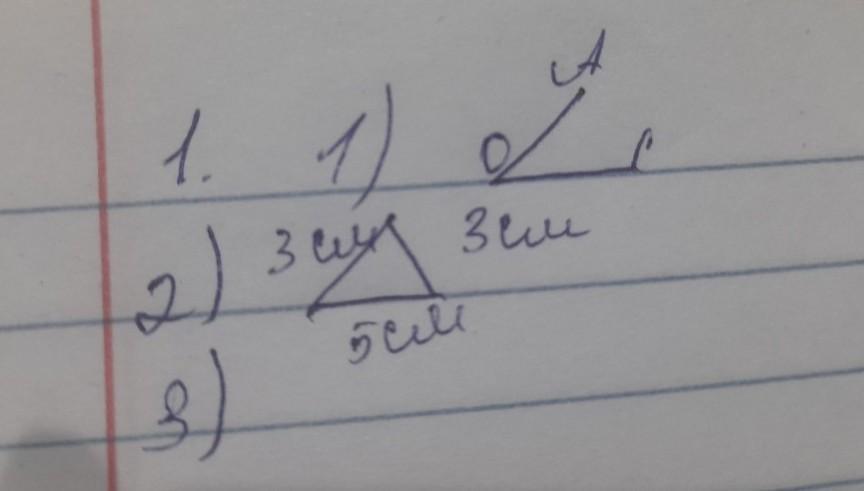 1. 1) O A С
2) 3 см 3 см
5 см
3)